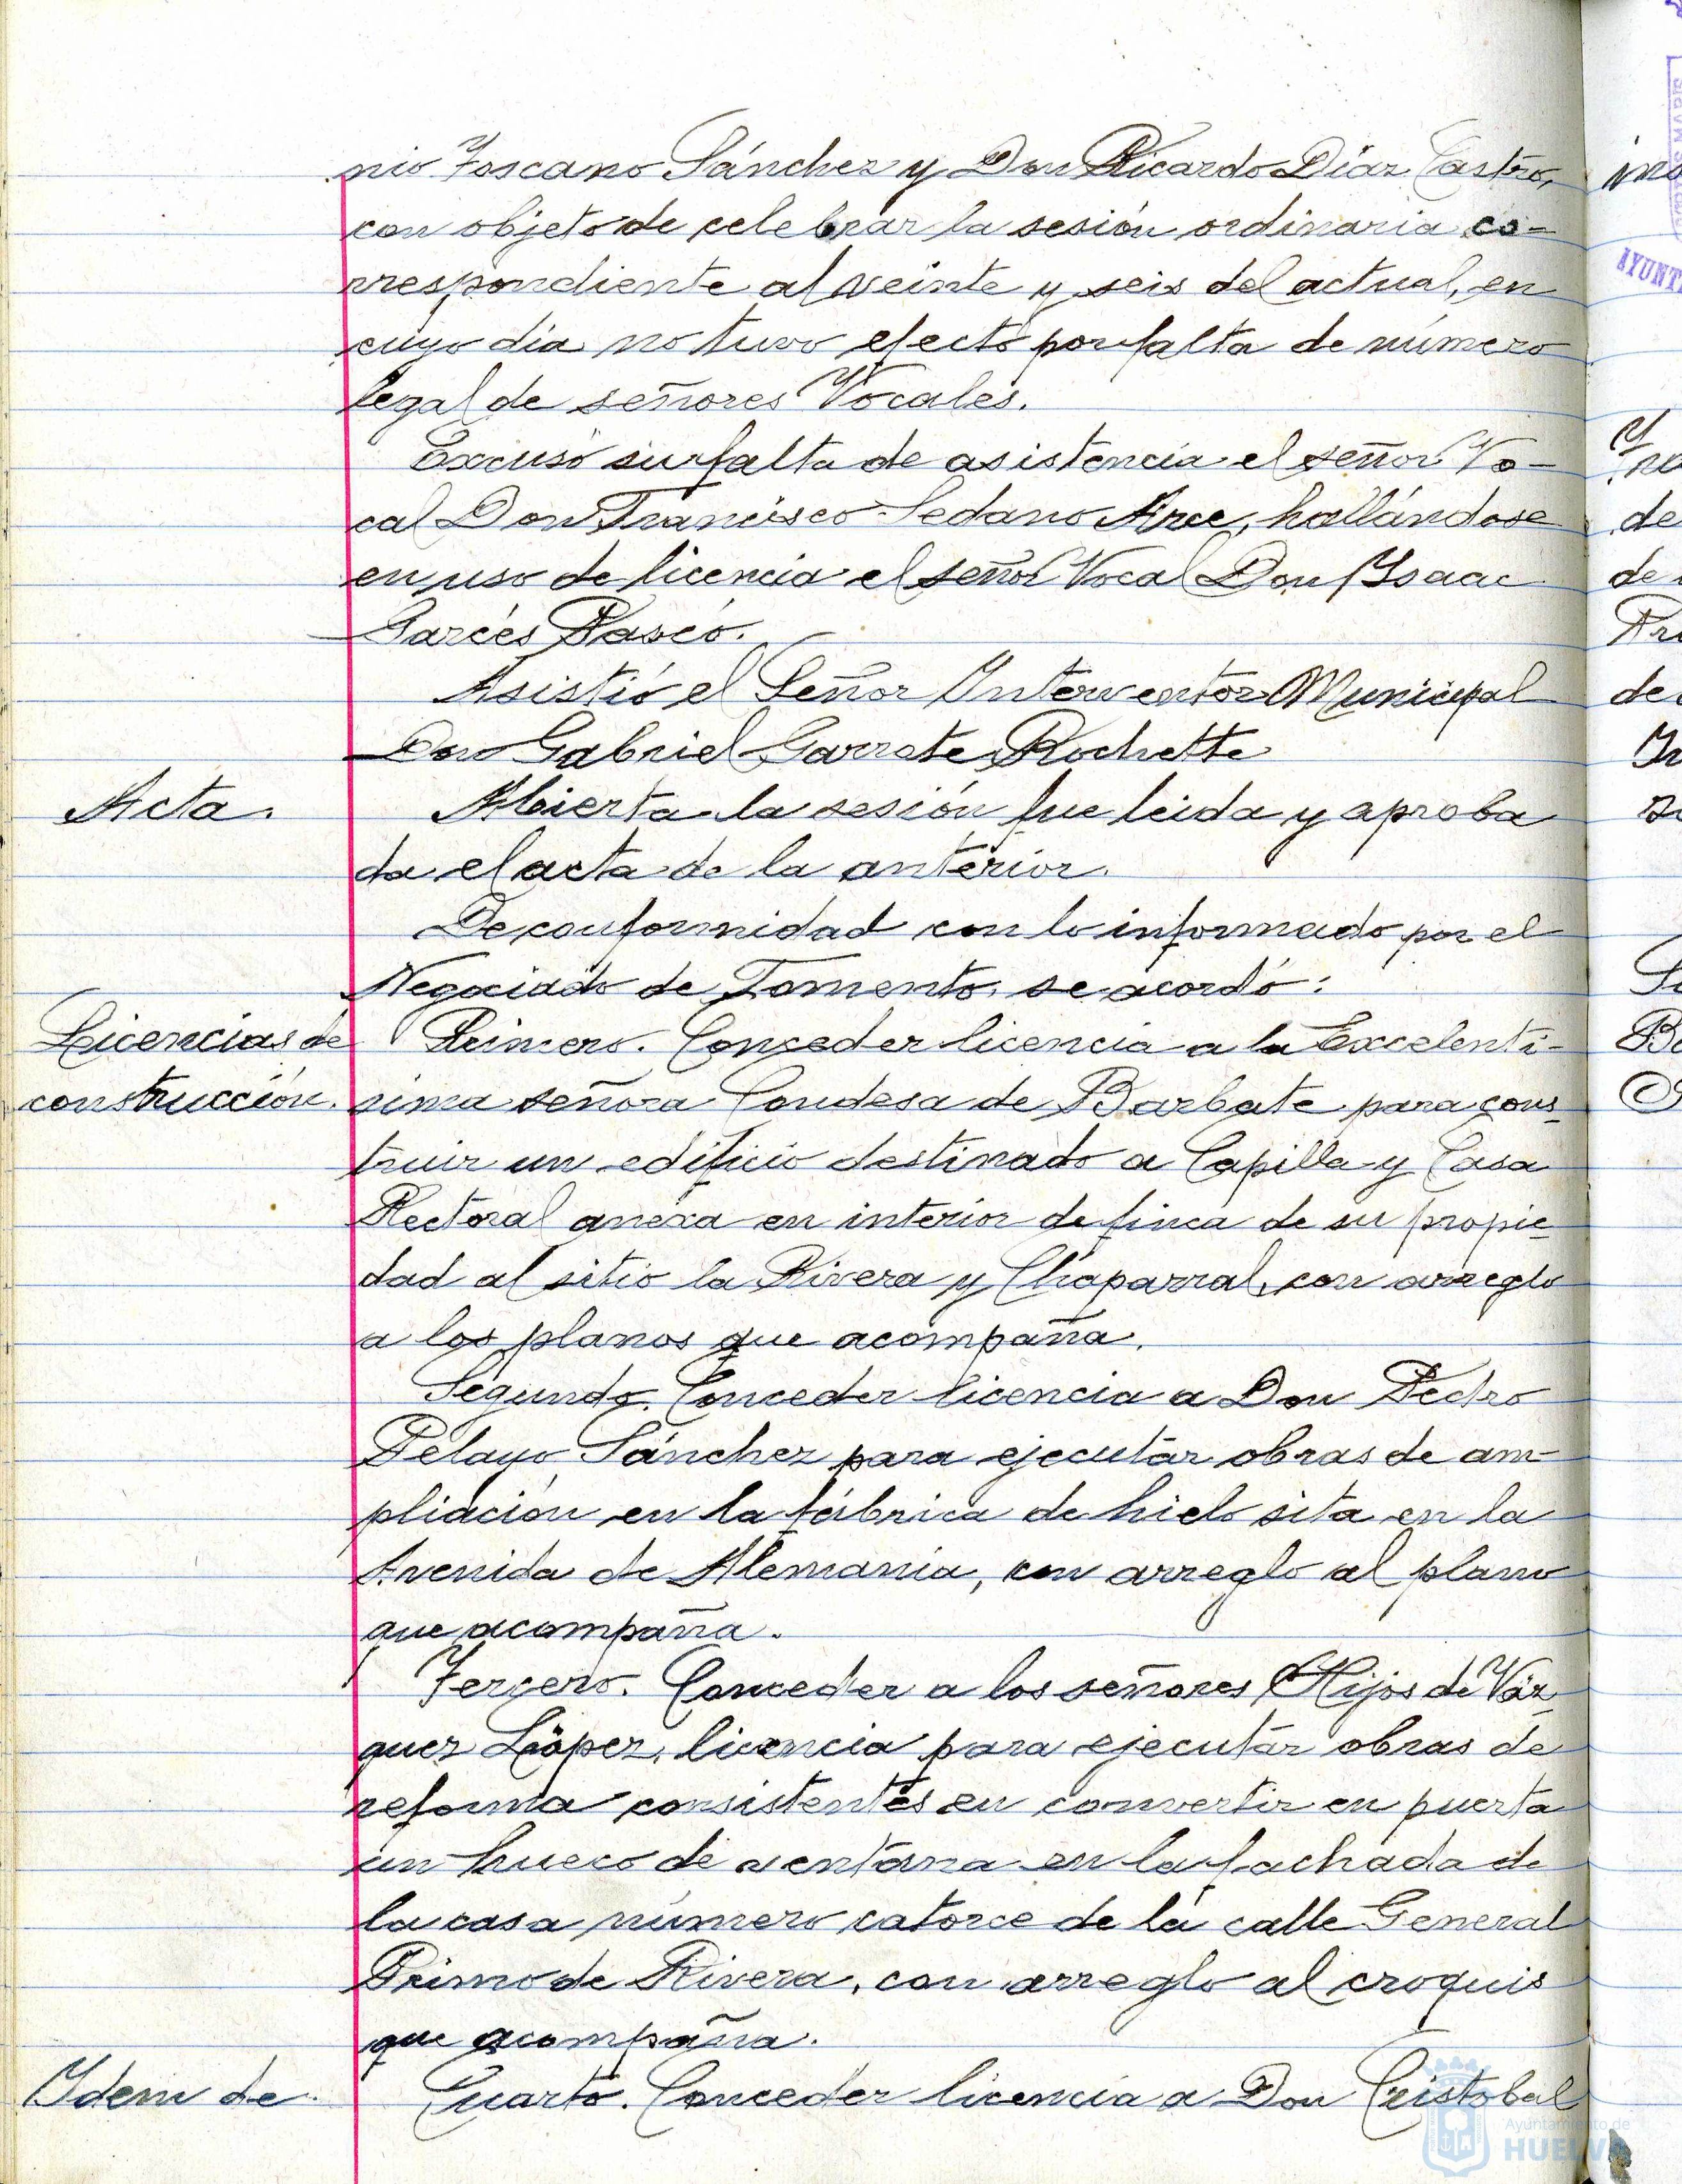 nio Toscano Sánchez y Don Ricardo Díaz Castro,
con objeto de celebrar la sesión ordinaria co-
rrespondiente al veinte y seis del actual, en
cuyo día no tuvo efecto por falta de número
legal de señores Vocales.
Excusó su falta de asistencia el señor Vo-
cal Don Francisco Sedano Arce, hallándose
en uso de licencia el señor Vocal Don Ysaac
Garcés Pascó.
Asistió el Señor Ynterventor Municipal
Don Gabriel Garrote Rochette
Acta.
Abierta la sesión fue leida y aproba
da el acta de la anterior.
De conformidad con lo informado por el
Negociado de Fomento, se acordó:
Licencias de
construcción.
Primero. Conceder licencia a la Excelentí-
sima señora Condesa de Barbate para cons
truir un edificio destinado a Capilla y Casa
Rectoral anexa en interior de finca de su propie
dad al sitio la Rivera y Chaparral, con arreglo
a los planos que acompaña.
Segundo. Conceder licencia a Don Pedro
Pelayo Sánchez para ejecutar obras de am-
pliación en la fábrica de hielo sita en la
Avenida de Alemania, con arreglo al plano
que acompaña.
Tercero. Conceder a los señores Hijos de Váz
quez López, licencia para ejecutar obras de
reforma consistentes en convertir en puerta
un hueco de ventana en la fachada de
la casa número catorce de la calle General
Primo de Rivera, con arreglo al croquis
que acompaña.
Ydem de
Cuarto. Conceder licencia a Don Cristobal
Ayuntamiento de
HUELVA